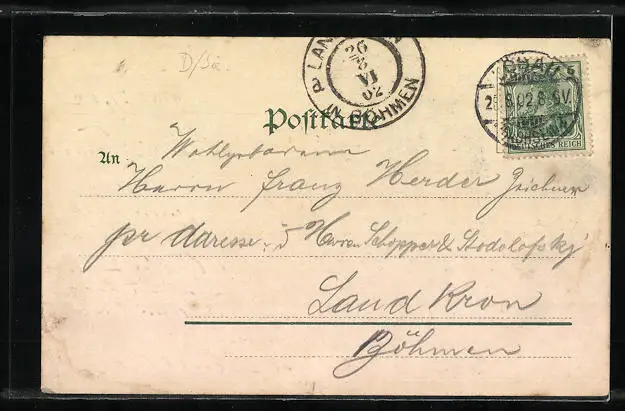 D/Sa
LAN
26
8
VI
02
IN BÖHMEN
Postkarte
8.02.8-9V.
DEUTSCHES REICH
An
Wohlgeboren
Herrn Franz Herder Zeichner
pr Adresse: Herren Schopper & Stodolofsky
Land Kron
Böhmen